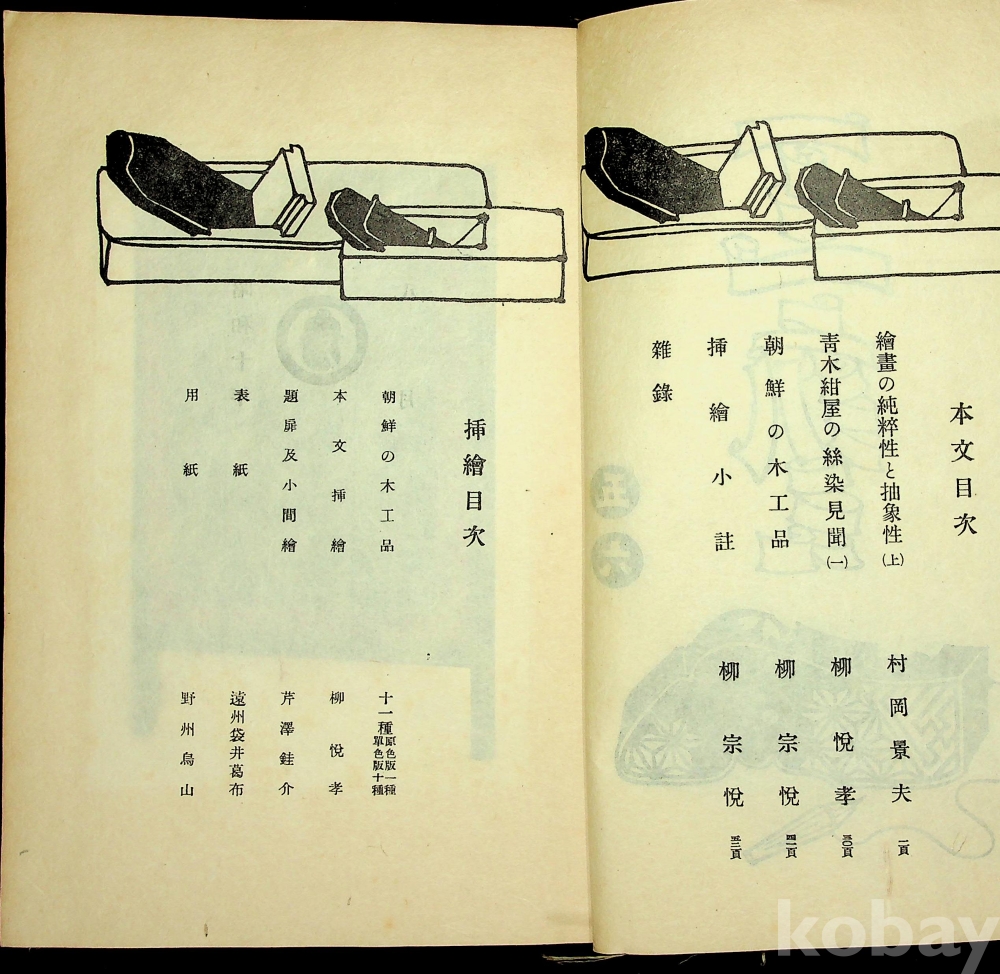 本文目次
繪畫の純粹性と抽象性(上) 村岡景夫 一頁
靑木紺屋の絲染見聞(一) 柳悅孝 三〇頁
朝鮮の木工品 柳宗悅
挿繪小註 柳宗悅 五三頁
雜錄
挿繪目次
朝鮮の木工品 十一種 原色版一種 單色版十種
本文挿繪 柳悅孝
題扉及小間繪 芹澤銈介
表紙 遠州袋井葛布
用紙 野州烏山
五
六
昭和十
月
kobay